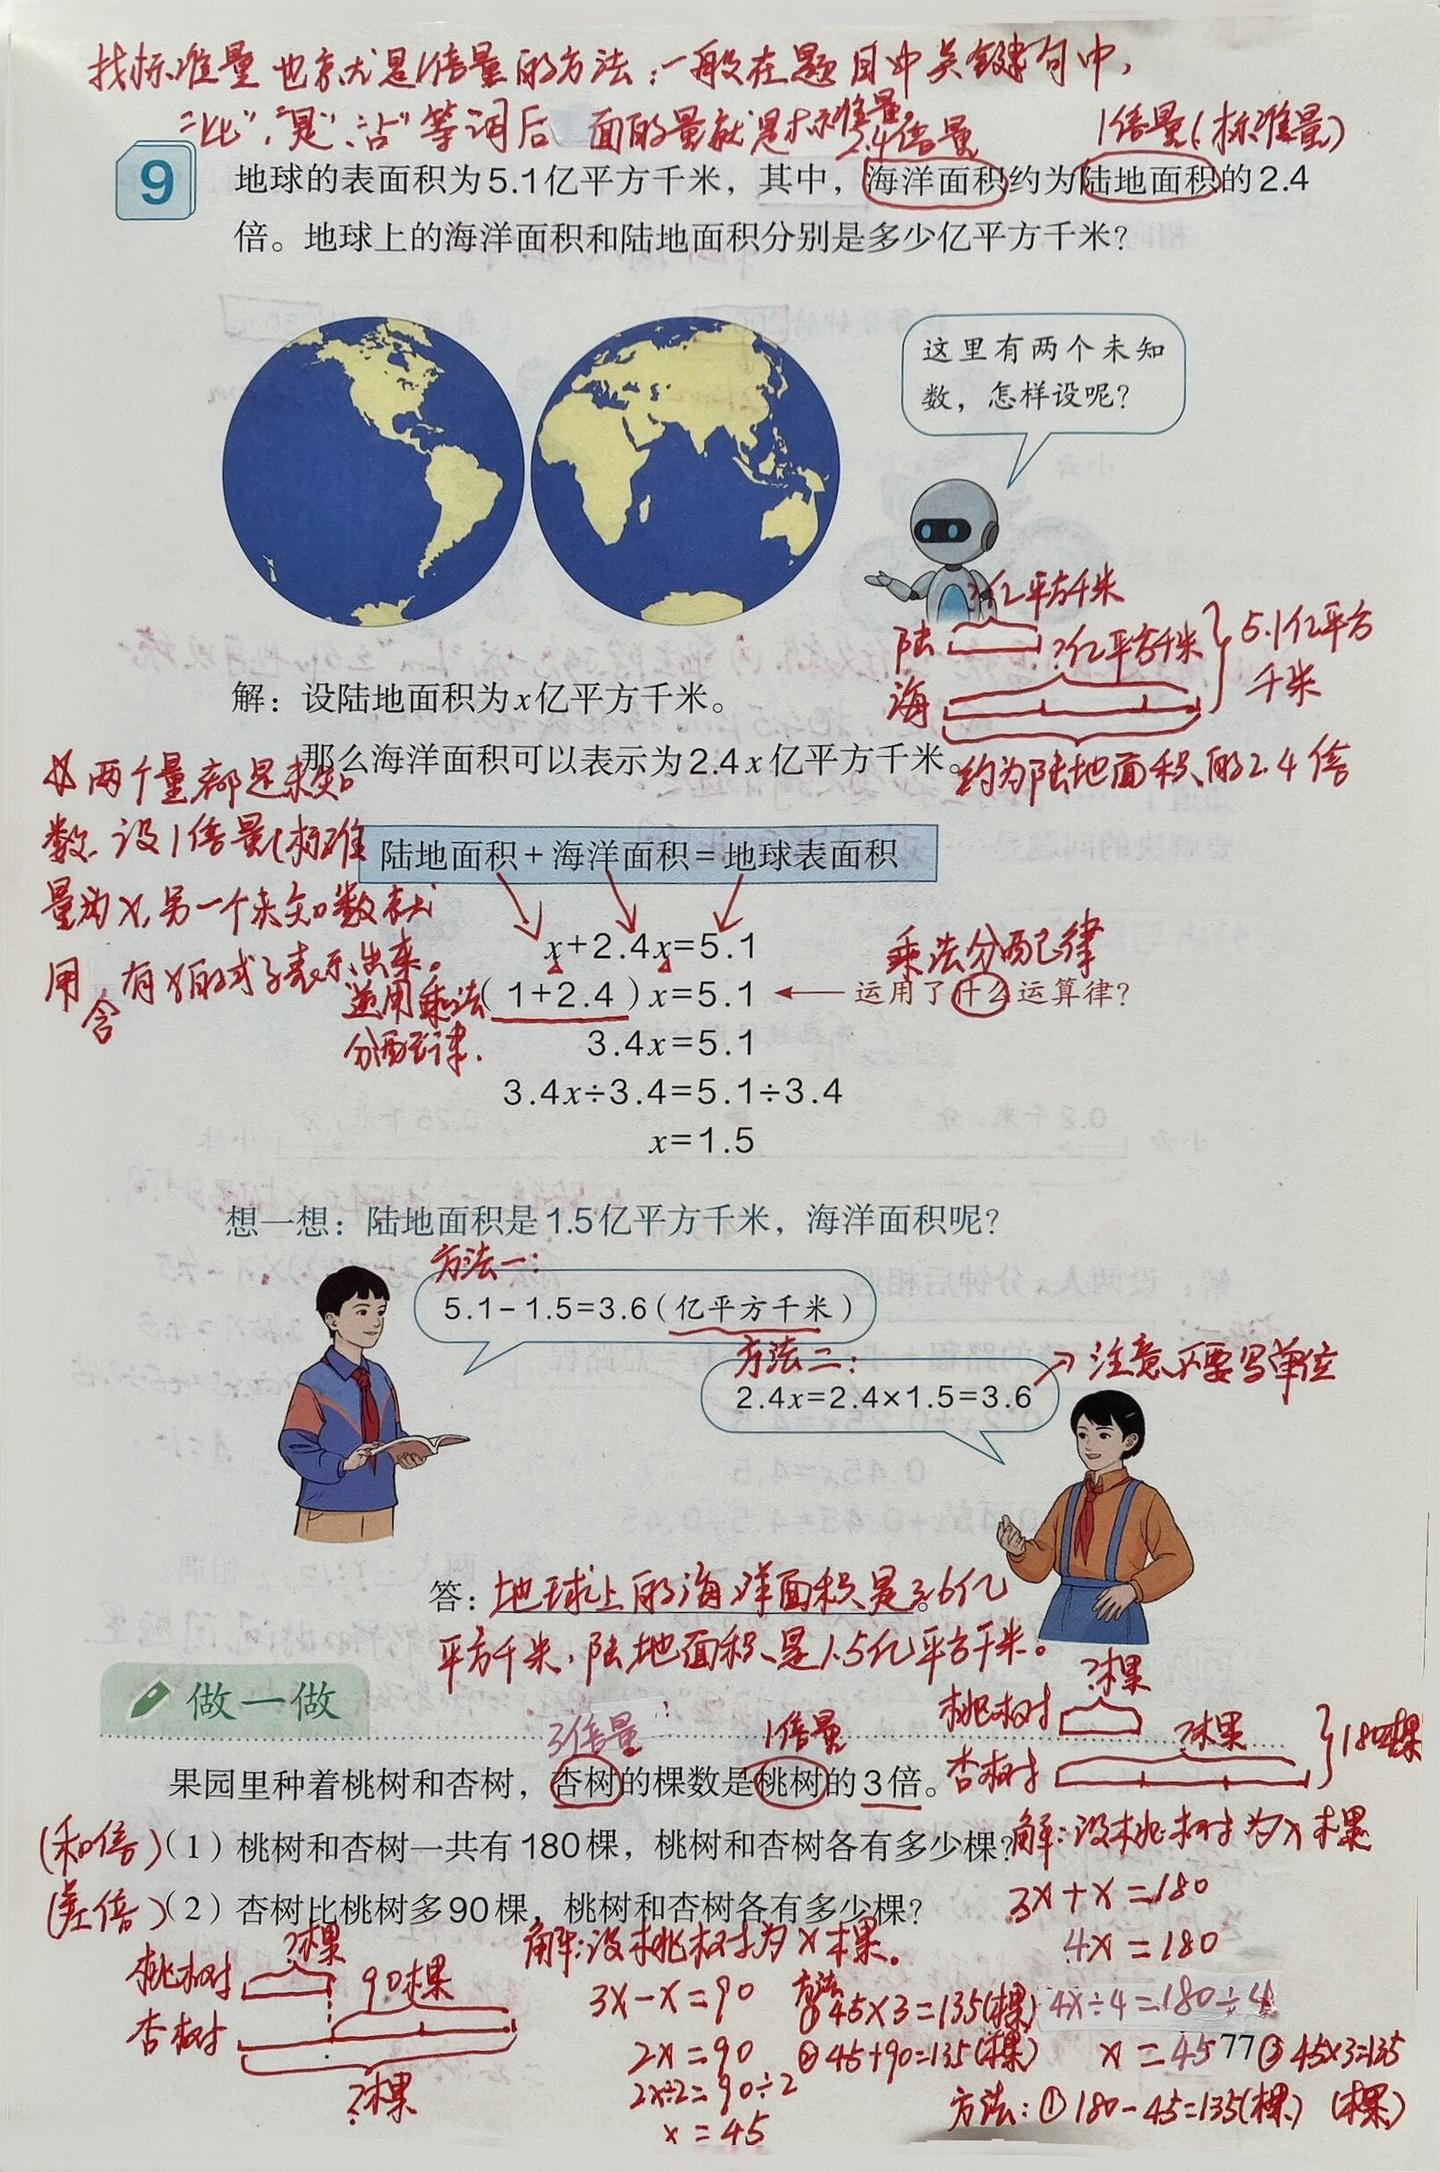 找标准量也就是1倍量的方法：一般在题目中关键句中，
“比”、“是”、“占”等词后面的量就是标准量。
2.4倍量
1倍量(标准量)
9
地球的表面积为5.1亿平方千米，其中，海洋面积约为陆地面积的2.4
倍。地球上的海洋面积和陆地面积分别是多少亿平方千米？
这里有两个未知
数，怎样设呢？
?亿平方千米
陆
?亿平方千米
5.1亿平方
千米
海
约为陆地面积的2.4倍
解：设陆地面积为x亿平方千米。
那么海洋面积可以表示为2.4x亿平方千米。
两个量都是未知
数，设1倍量(标准
量为x,另一个未知数就
用含有x的式子表示出来。
陆地面积+海洋面积=地球表面积
x+2.4x=5.1
乘法分配律
逆用乘法
分配律.
(1+2.4)x=5.1
运用了什么运算律？
3.4x=5.1
3.4x÷3.4=5.1÷3.4
x=1.5
想一想：陆地面积是1.5亿平方千米，海洋面积呢？
方法一：
5.1-1.5=3.6(亿平方千米)
方法二：
2.4x=2.4×1.5=3.6
注意不要写单位
答：地球上的海洋面积是3.6亿
平方千米，陆地面积是1.5亿平方千米。
做一做
3倍量
1倍量
桃树
?棵
杏树
?棵
180棵
果园里种着桃树和杏树，杏树的棵数是桃树的3倍。
(和倍)(1)桃树和杏树一共有180棵，桃树和杏树各有多少棵？
解:设桃树为x棵
3x+x=180
4x=180
4x÷4=180÷4
x=45
②45×3=135
(棵)
方法:①180-45=135(棵)
(差倍)(2)杏树比桃树多90棵，桃树和杏树各有多少棵？
桃树
?棵
90棵
杏树
?棵
解:设桃树为x棵。
3x-x=90
2x=90
2x÷2=90÷2
x=45
方法
①45×3=135(棵)
②45+90=135(棵)
77